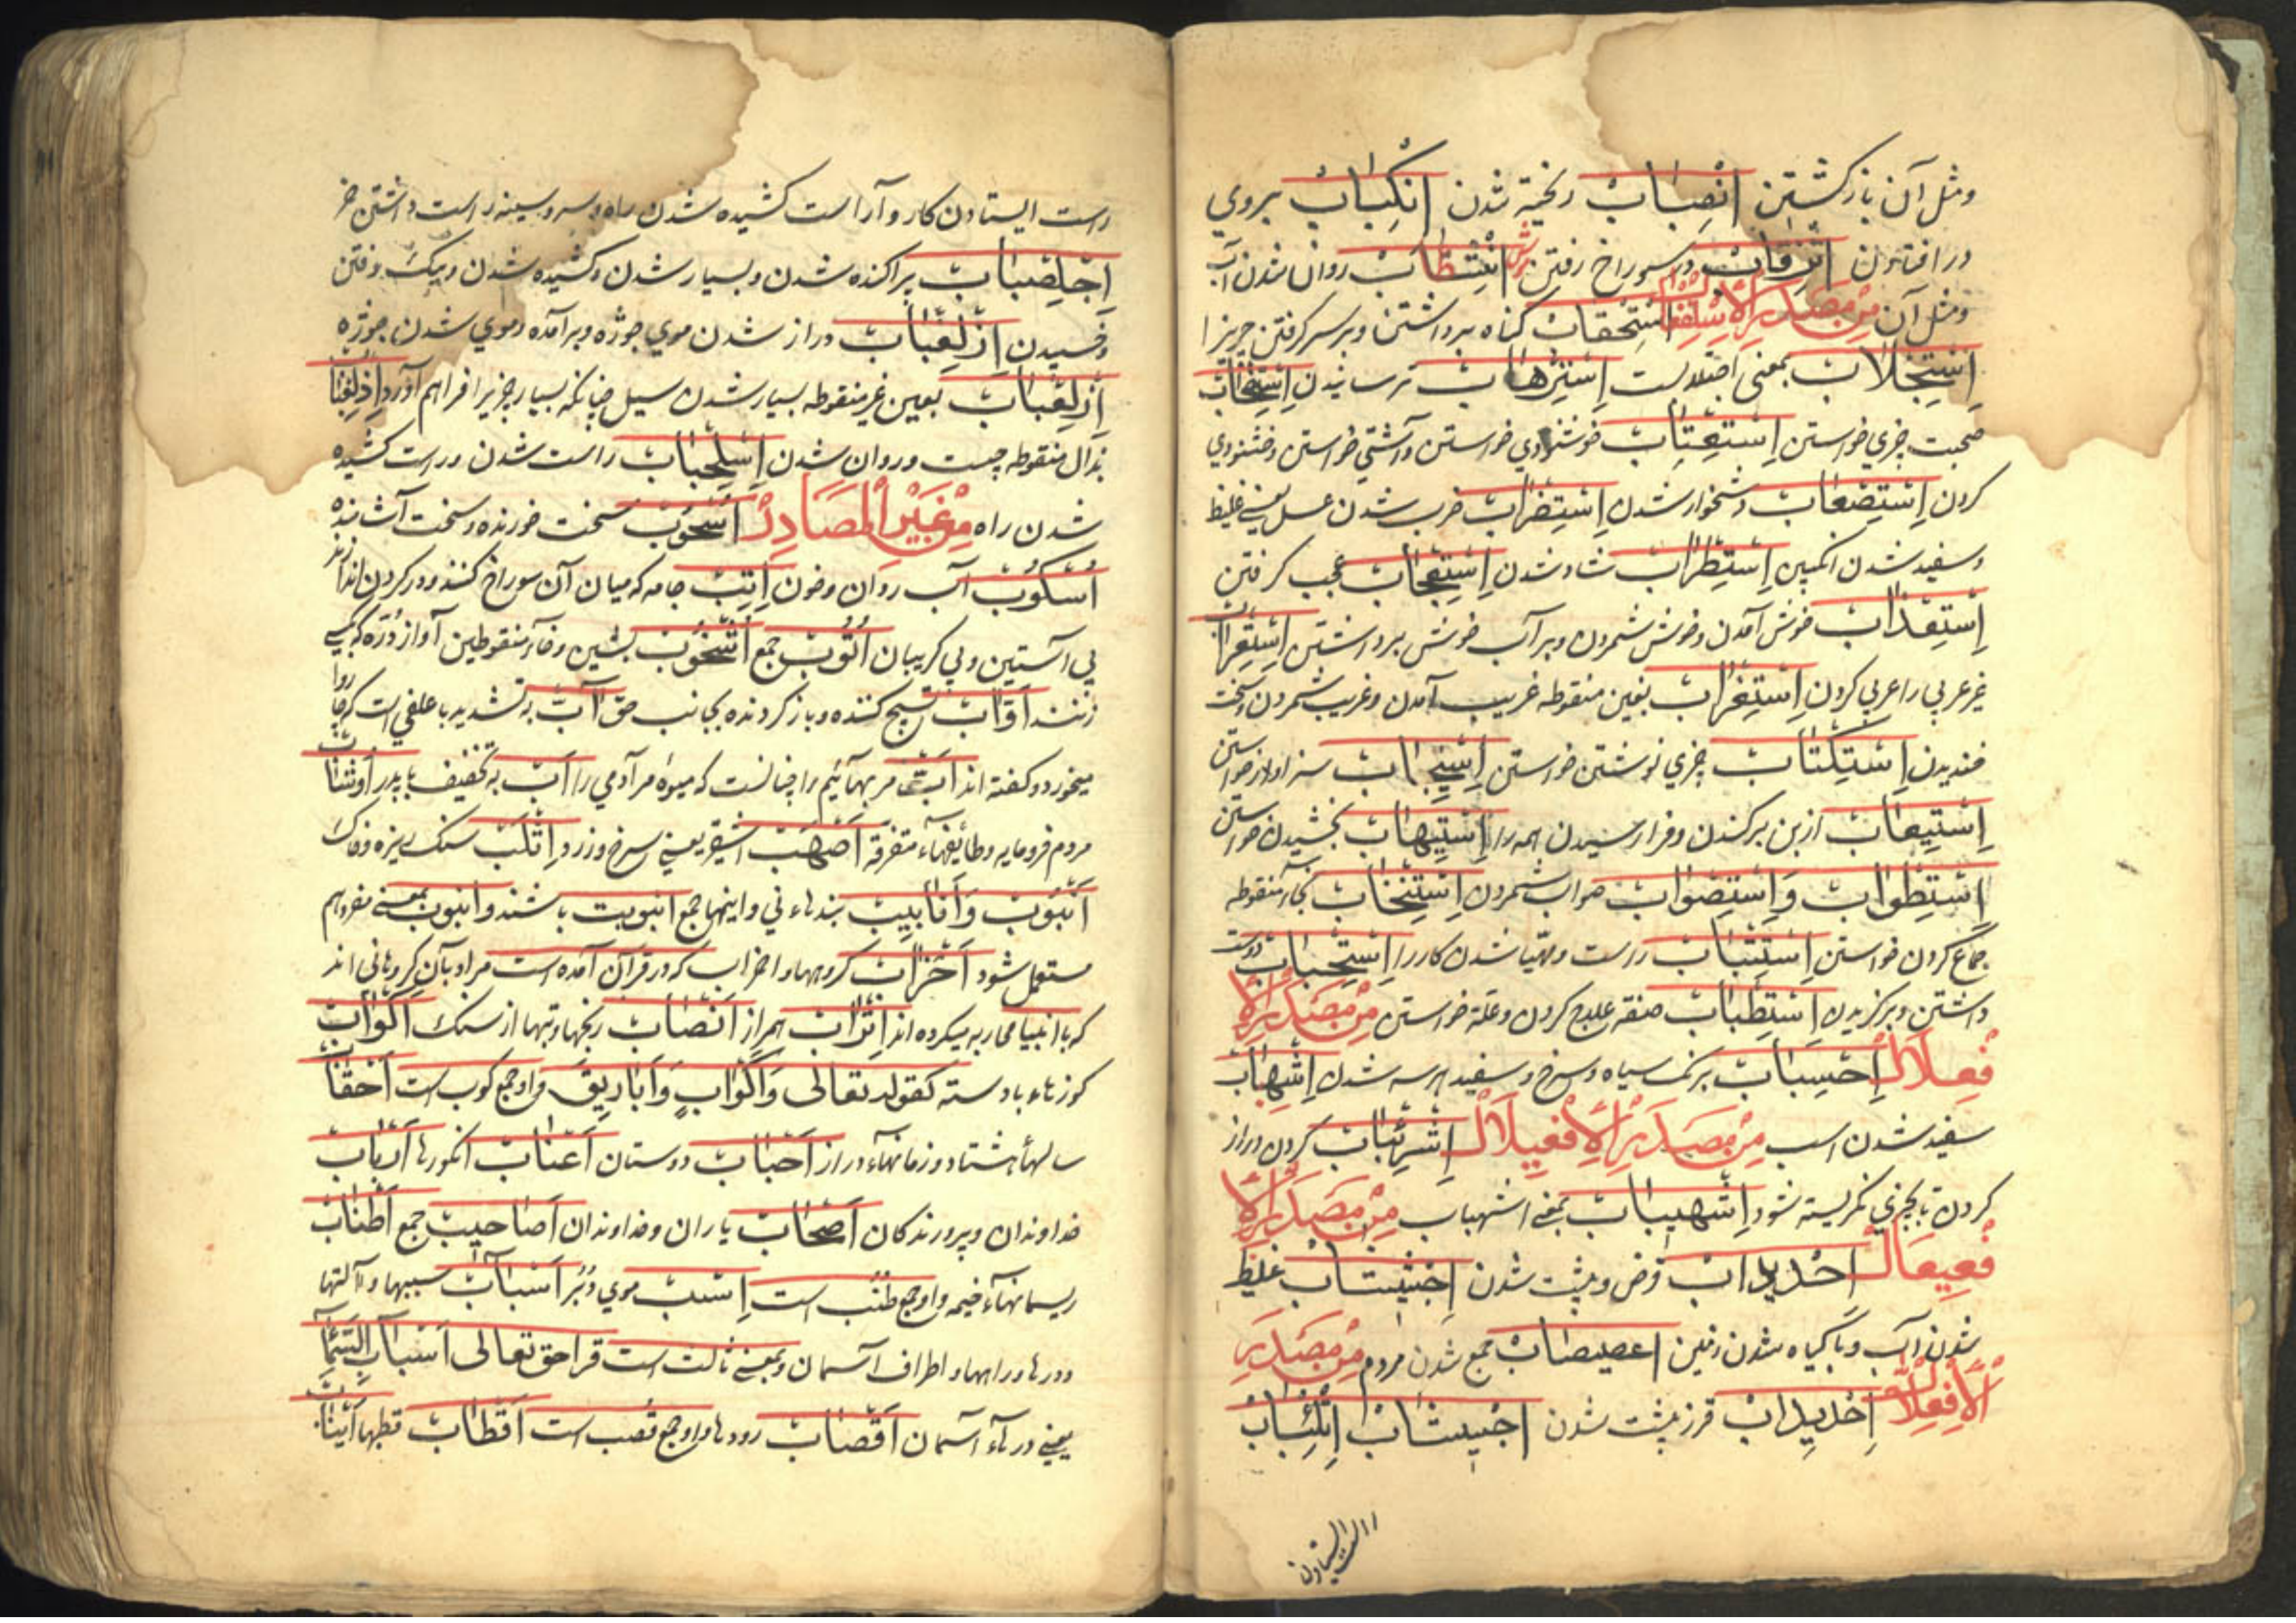 ومثل آن بازگشتن اِنْصِبَابْ ریخته شدن اِنْکِبَابْ بروي
در افتادن اِنْزِقَابْ در سوراخ رفتن اِنْثِطَابْ روان شدن آب
ومثل آن مِنْ مَصْدَرِ الْاِسْتِفْعَالْ اِسْتِحْقَابْ کناه برداشتن وبر سر کرفتن چیزیرا
اِسْتِجْلَابْ بمعنی اِسْتِرْهَابْ ترسانیدن اِسْتِصْحَابْ
صحبت چیزي خواستن اِسْتِعْتَابْ خوشنودي خواستن وآشتي خواستن وخشنودي
کردن اِسْتِصْعَابْ دشخوار شدن اِسْتِضْرَابْ ضرب شدن عسل یعنے غلیظ
وسفید شدن انکبین اِسْتِطْرَابْ شاد شدن اِسْتِعْجَابْ عجب کرفتن
اِسْتِعْذَابْ خوش آمدن وخوش شمردن وبر آب خوش برداشتن اِسْتِعْرَابْ
غیر عربي را عربي کردن اِسْتِغْرَابْ بغین منقوطه غریب آمدن وغریب شمردن وسخت
خندیدن اِسْتِکْتَابْ چیزي نوشتن خواستن اِسْتِیْجَابْ سزاوار خواستن
اِسْتِیْعَابْ از بن برکندن وفرا رسیدن همه را اِسْتِیْهَابْ بخشیدن خواستن
اِسْتِطْوَابْ وَاِسْتِصْوَابْ صواب شمردن اِسْتِنْخَابْ بخاء منقوطه
جماع کردن خواستن اِسْتِتْبَابْ راست ومهیا شدن کار را اِسْتِحْبَابْ دوست
داشتن وبرکزیدن اِسْتِطْبَابْ صفة علاج کردن وعلة خواستن مِنْ مَصْدَرِ الْاِ
فْعِلَالْ اِحْسِبَابْ برنک سیاه وسرخ وسفید شدن اِشْهِبَابْ
سفید شدن اسب مِنْ مَصْدَرِ الْاِفْعِیلَالْ اِشْرِئْبَابْ کردن دراز
کردن تا بچیزي نکریسته شود اِشْهِیبَابْ بمعنے اشهباب مِنْ مَصْدَرِ الْاِ
فْعِیعَالْ اِحْدِیدَابْ وبپشت شدن اِخْشِیشَابْ غلیظ
شدن آب وباکیاه شدن زمین اِعْصِیصَابْ جمع شدن مردم مِنْ مَصْدَرِ
الْاِفْعِلَّالْ اِحْدِیدَابْ بپشت شدن اِتْلِئْبَابْ
راست ایستادن
راست ایستادن کار وآراست کشیده شدن راه وسر وسینه راست داشتن خر
اِجْلِعْبَابْ براکنده شدن وبسیار شدن وکشیده شدن ورفتن
اِزْلِغْبَابْ دراز شدن موي جوژه وبر آمده موي شدن جوژه
اِزْلِعْبَابْ بعین غیر منقوطه بسیار شدن سیل چنانکه بسیار چیز را فراهم آورد اِذْلِعْبَابْ
بذال منقوطه چست وروان شدن اِسْلِحْبَابْ راست شدن وراست کشیده
شدن راه مِنْ غَیْرِ الْمَصَادِرْ اُسْحُوبْ سخت خورنده وسخت آشامنده
اُسْکُوبْ آب روان وخون اِتْبْ جامه که میان آن سوراخ کنند ودر کردن اندازند
بي آستین وبي کریبان اُتُوبْ جمع اُشْخُوبْ بشین وخاء منقوطین آواز دره که بکسے
زنند اَوَّابْ تسبیح کننده وباز کردنده بجانب حق اَبّ به تشدید با علفي است که چارپا
میخورد وکفته اند اَبّ مر بهائیم را چنانست که میوه مر آدمي را اَبْ به تخفیف با پدر اَوْشَابْ
مردم فرومایه وطائفهاء متفرقه اَصْهَبْ اشقر یعنے سرخ وزرد اِثْلَبْ سنک ریزه وخاک
اُنْبُوبْ وَاَنَابِیبْ بندهاء ني واینها جمع انبوبت باشند وانبوب بمعنے مفرد هم
مستعمل شود اَحْزَابْ کروهها واحزاب که در قرآن آمده است مراد بآن کروهاني اند
که با انبیا محاربه میکرده اند اَتْرَابْ همزاد اَنْصَابْ رنجها وبتها از سنک اَکْوَابْ
کوزهاء بادسته کقوله تعالی وَاَکْوَابٍ وَاَبَارِیقَ واو جمع کوب است اَحْقَابْ
سالهاء هشتاد وزمانهاء دراز اَحْبَابْ دوستان اَعْنَابْ انکورها اَرْبَابْ
خداوندان وپرورندکان اَصْحَابْ یاران وخداوندان اَصَاحِیبْ جمع اَطْنَابْ
ریسمانهاء خیمه واو جمع طنب است اِسْبْ موي دُبُر اَسْبَابْ سببها وآلتها
ودرها وراهها واطراف آسمان وبمعنے ثالث است قراحق تعالی اَسْبَابَ السَّمَاءِ
یعنے درهاء آسمان اَقْصَابْ رودها واو جمع قصب است اَقْطَابْ قطبها اَنْیَابْ